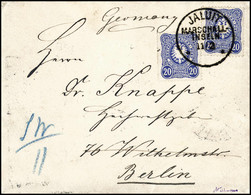 Germany
JALUIT
MARSCHALL-
INSELN
11/2
20
20
Herrn
Dr. Knappe
76 Wilhelmstr.
Berlin